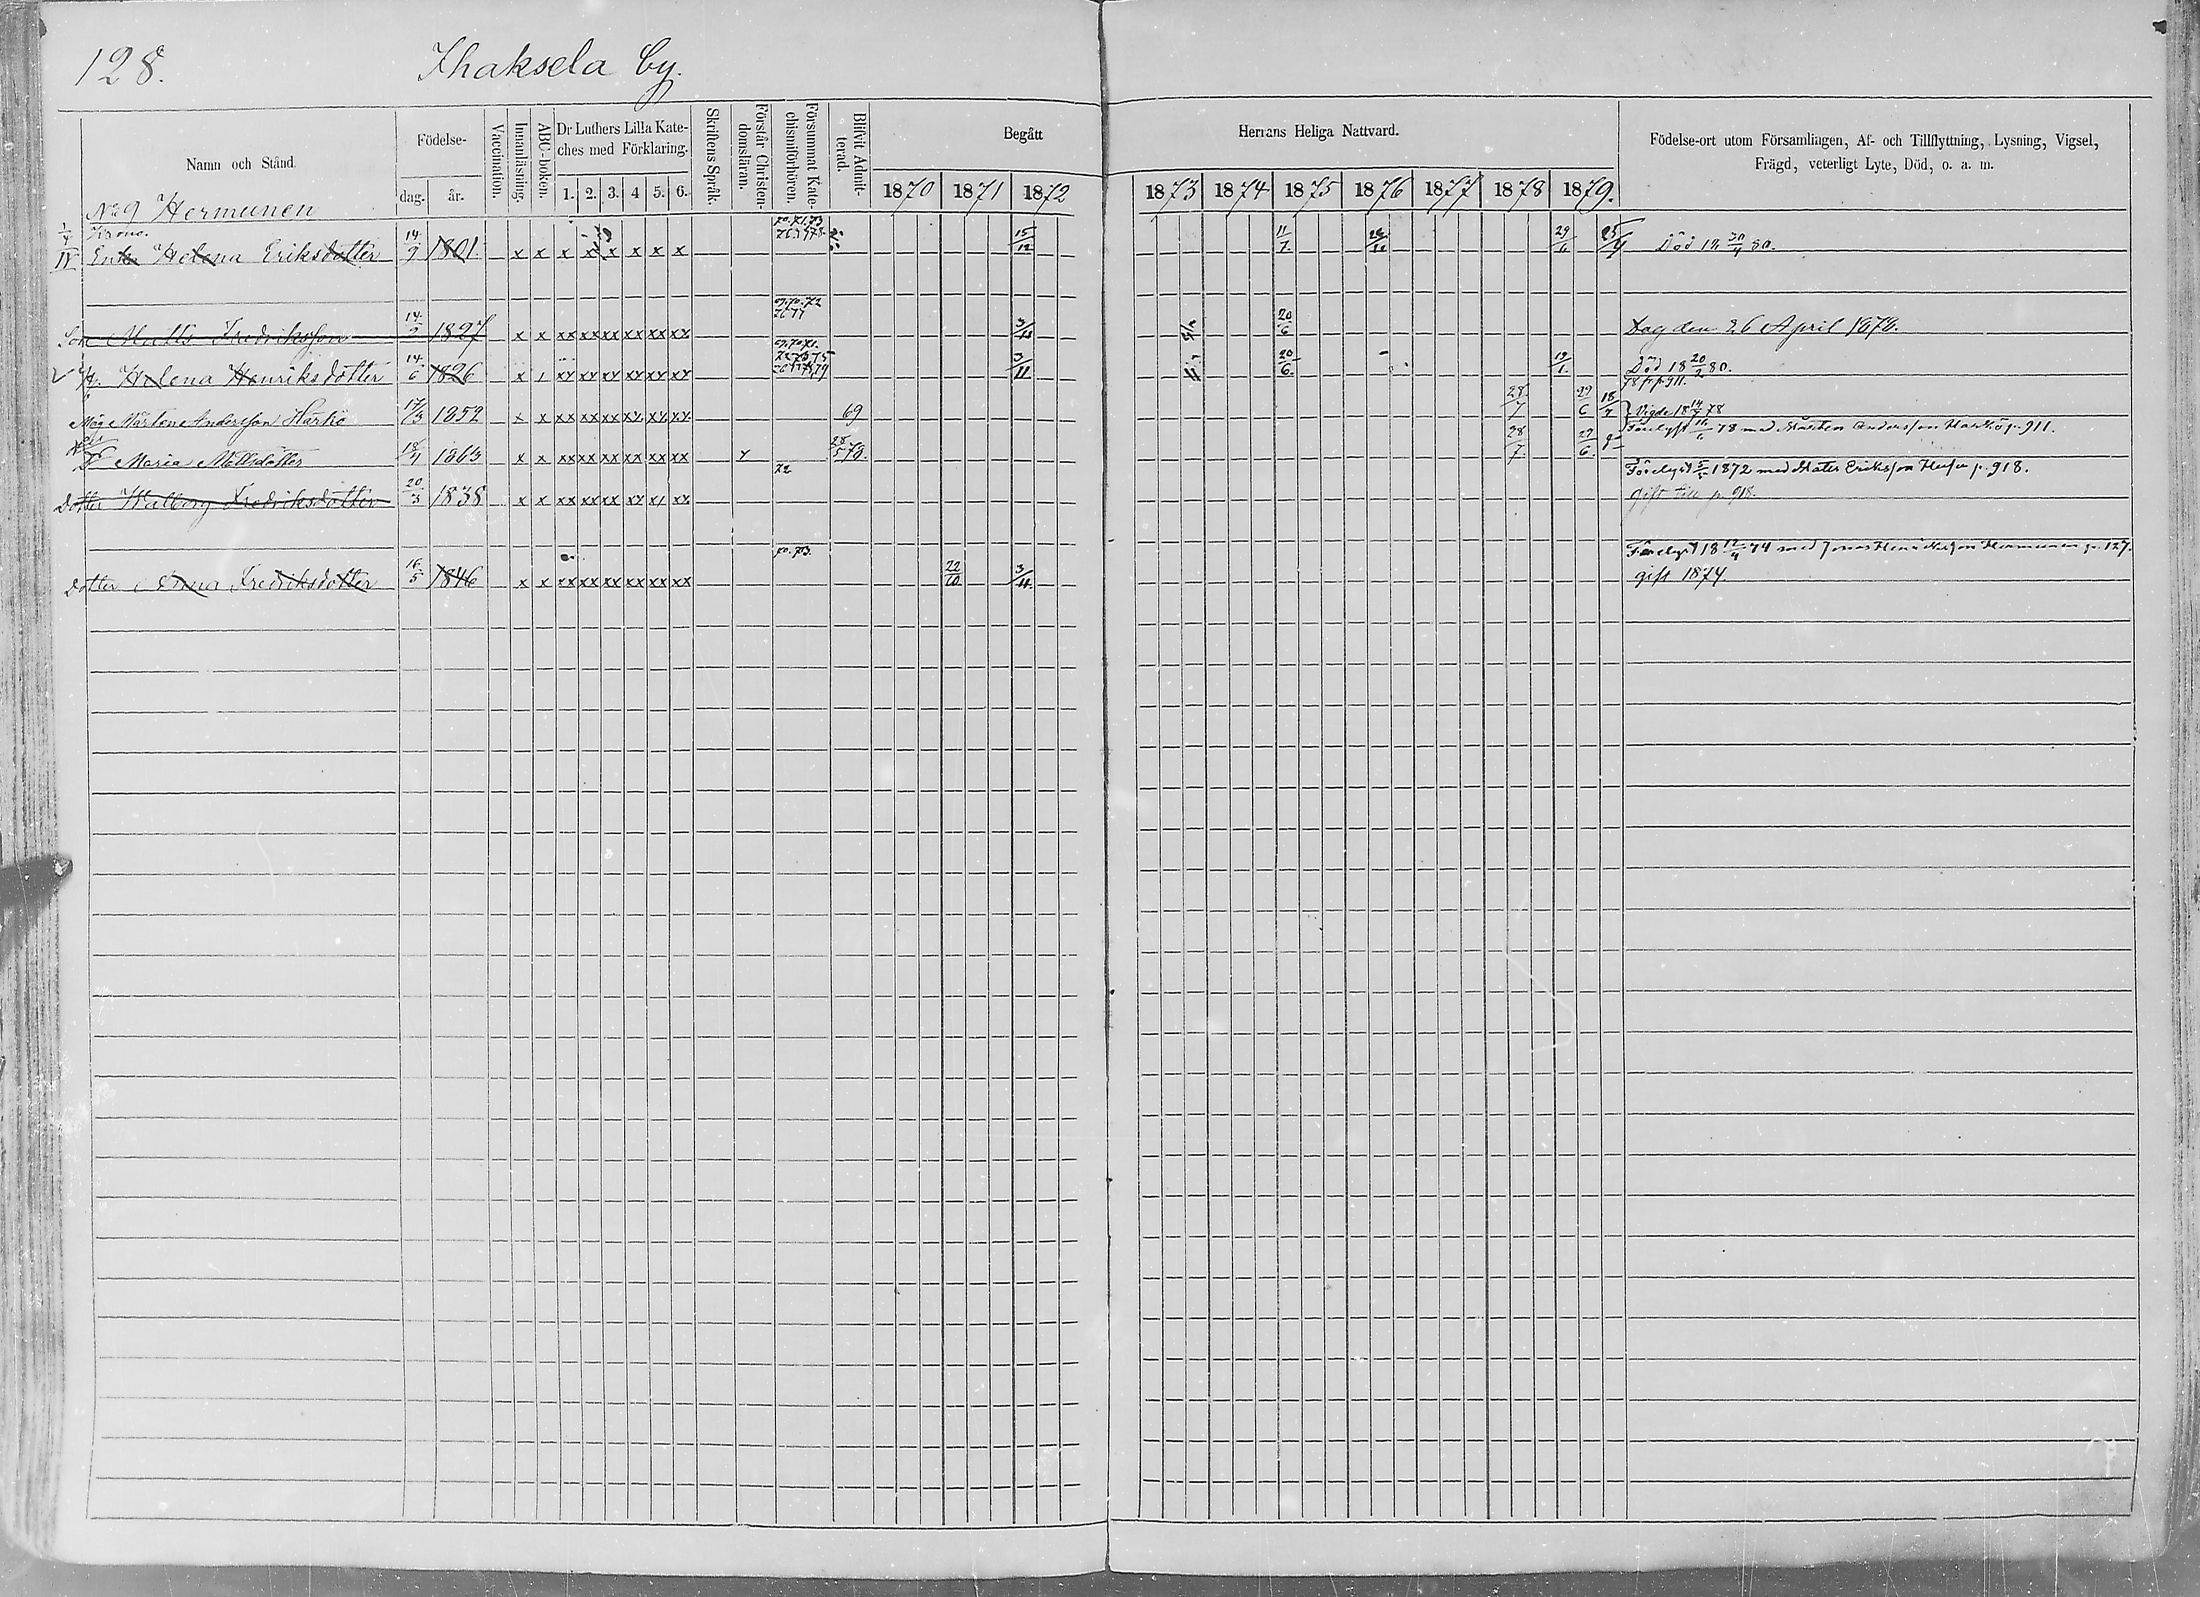 128.
Ihaksela by.
Namn och Stånd.
Födelse-
dag.
år.
Vaccination.
Innanläsning.
ABC-boken.
Dr Luthers Lilla Kate-
ches med Förklaring.
1. 2. 3. 4 5. 6.
Skriftens Språk.
Förstår Christen-
domsläran.
Försummat Kate-
chismiförhören.
Blifvit Admit-
terad.
Begått
1870 1871 1872
Herrans Heliga Nattvard.
1873 1874 1875 1876 1877 1878 1879.
Födelse-ort utom Församlingen, Af- och Tillflyttning, Lysning, Vigsel,
Frägd, veterligt Lyte, Död, o. a. m.
No 9 Hermunen
Krono.
Enka Helena Eriksdotter 14/9 1801. x x x x x x x x 15/12 11/7 29/6 25/4 Död 18 30/4 80.
Son Matts Fredriksson 14/9 1827 x x xx xx xx xx xx xx 3/11 20/6 Dog den 26 April 1878.
H. Helena Henriksdotter 14/6 1826 3/11 20/6 19/1. Död 18 20/2 80.
78 fr. p. 911.
Måg Mårten Andersson Harkö 17/3 1852 x x xx xx xx xx xx xx 69 28/7 29/6 18/7 Vigde 18 14/7 78
D. Maria Mattsdotter 18/4 1863 x x xx xx xx xx xx xx 28/5 78. 28/7 29/6 Förelyst 16/6 78 med Mårten Andersson Harkö p. 911.
Dotter Walborg Fredriksdotter 20/3 1838 x x xx xx xx xx x1 xx 72 Förelyst 5/5 1872 med Mats Eriksson p. 918.
gift till p. 918.
Dotter Anna Fredriksdotter 16/5 1846 x x xx xx xx xx xx xx 70. 73. 22/10 3/11. Förelyst 18 12/4 74 med Jonas Hermunen p. 127.
gift 1874.